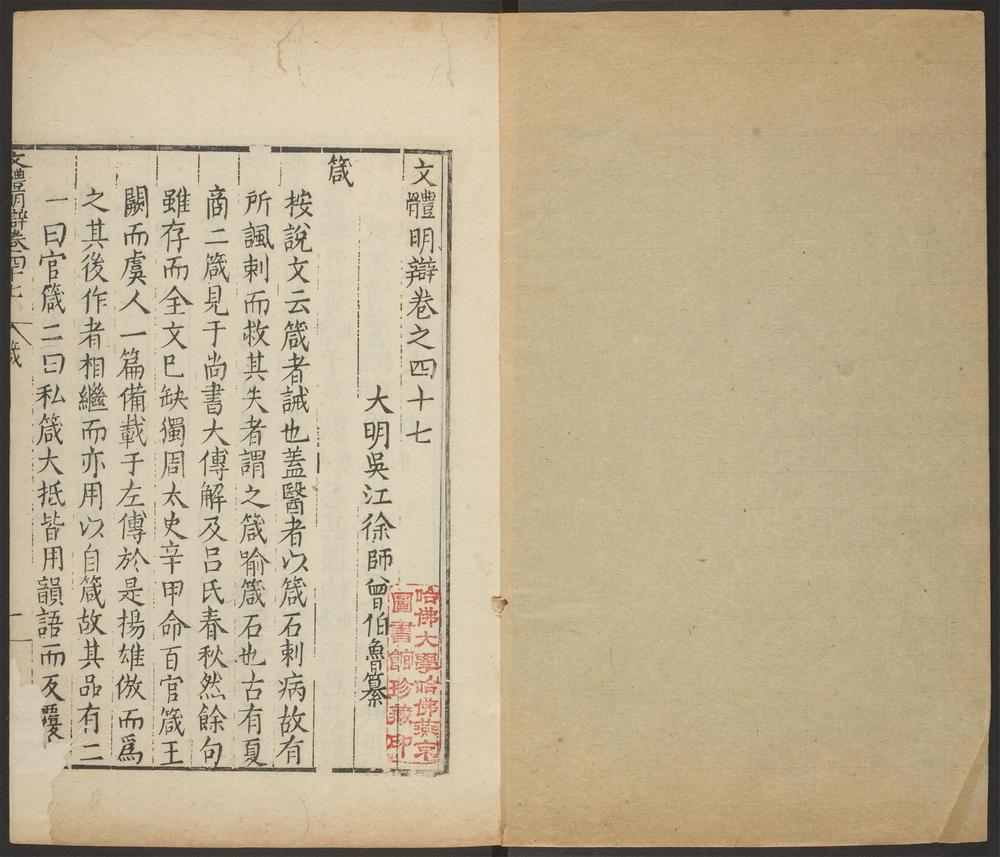 文體明辯卷之四十七
大明吳江徐師曾伯魯纂
箴
按說文云箴者誡也蓋醫者以箴石刺病故有
所諷刺而救其失者謂之箴喻箴石也古有夏
商二箴見于尚書大傳解及呂氏春秋然餘句
雖存而全文已缺獨周太史辛甲命百官箴王
闕而虞人一篇備載于左傳於是揚雄倣而爲
之其後作者相繼而亦用以自箴故其品有二
一曰官箴二曰私箴大抵皆用韻語而反覆
文體明辯卷四十七
箴
一
哈佛大學哈佛燕京
圖書館珍藏印